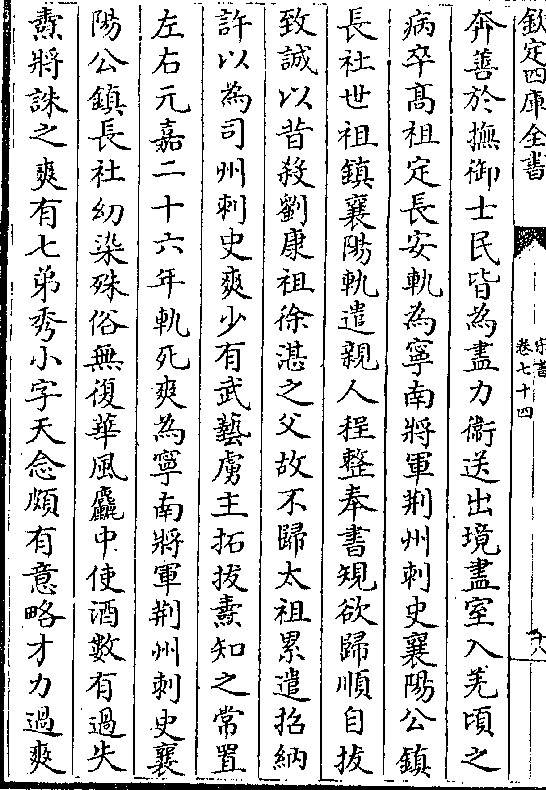 欽定四庫全書
宋書
卷七十四
十八
奔善於撫御士民皆為盡力衞送出境盡室入羌頃之
病卒髙祖定長安軌為寧南將軍荆州刺史襄陽公鎮
長社世祖鎮襄陽軌遣親人程整奉書規欲歸順自拔
致誠以昔殺劉康祖徐湛之父故不歸太祖累遣招納
許以為司州刺史爽少有武藝虜主拓拔燾知之常置
左右元嘉二十六年軌死爽為寧南將軍荆州刺史襄
陽公鎮長社幼染殊俗無復華風麤中使酒數有過失
燾將誅之爽有七弟秀小字天念頗有意略才力過爽